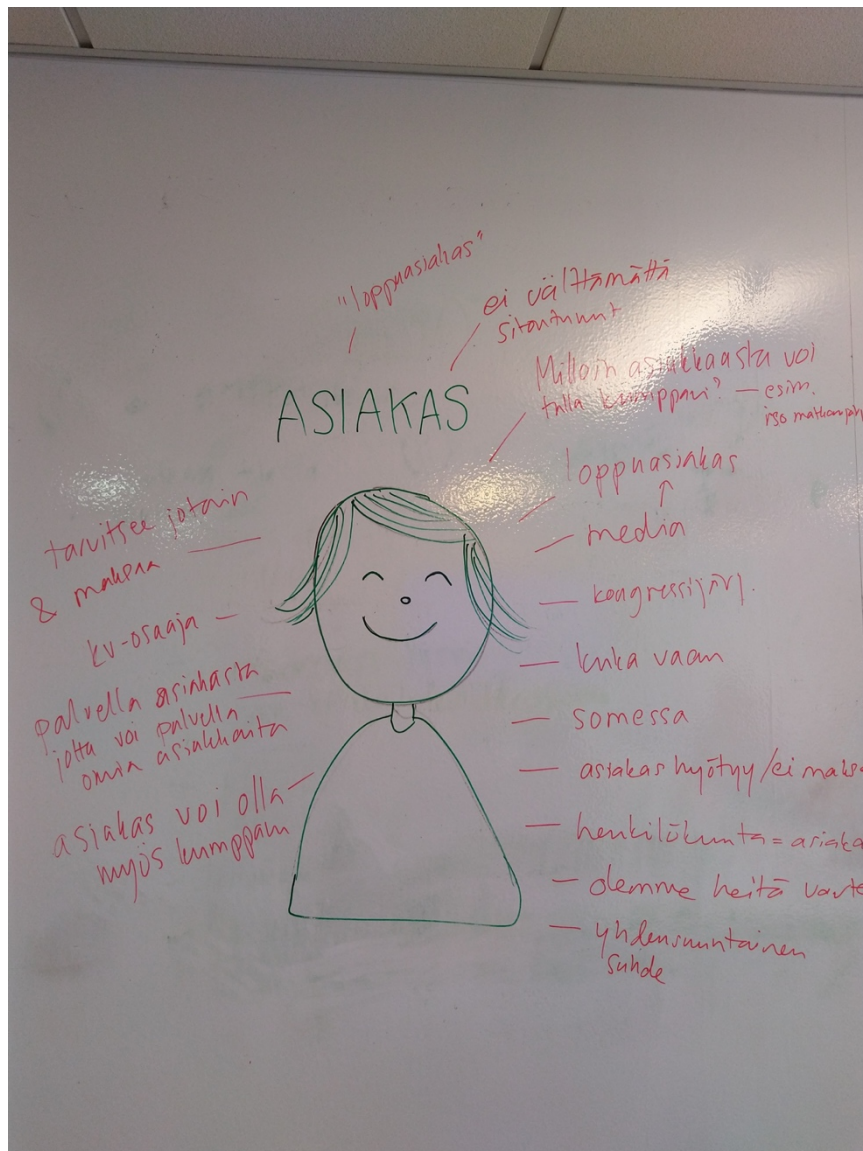 "loppuasiakas"
ei välttämättä
sitoutunut
ASIAKAS
Milloin asiakkaasta voi
tulla kumppani? — esim.
iso
loppuasiakas
media
kongressijärj.
kuka vaan
somessa
asiakas hyötyy/ei
henkilökunta =
olemme heitä
yhdensuuntainen
suhde
tarvitsee jotain
& maksaa
kv-osaaja
palvella asiakasta
jotta voi palvella
omia asiakkaita
asiakas voi olla
myös kumppani